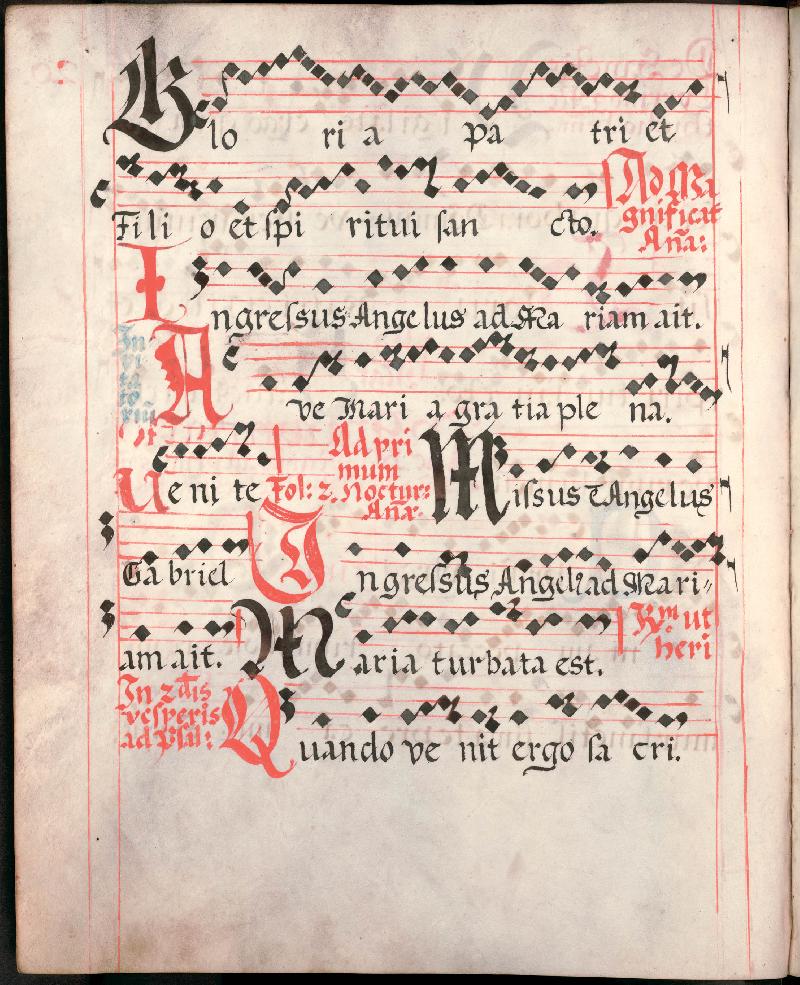 Glo ri a pa tri et
Fili o et spi ritui san cto. Ad Ma
gnificat
Aña:
Ingressus Angelus ad Ma riam ait.
In
vi
ta
to
riũ
Ave Mari a gra tia ple na.
ps
Ve ni te Fol: 2. Ad pri
mum
Noctur:
Añæ
Missus ē Angelus
Gabriel Ingressus Angelꝰ ad Mari-
am ait. Maria turbata est. Rm ut
heri
In 2dis
vesperis
ad Psal:
Quando ve nit ergo sa cri.